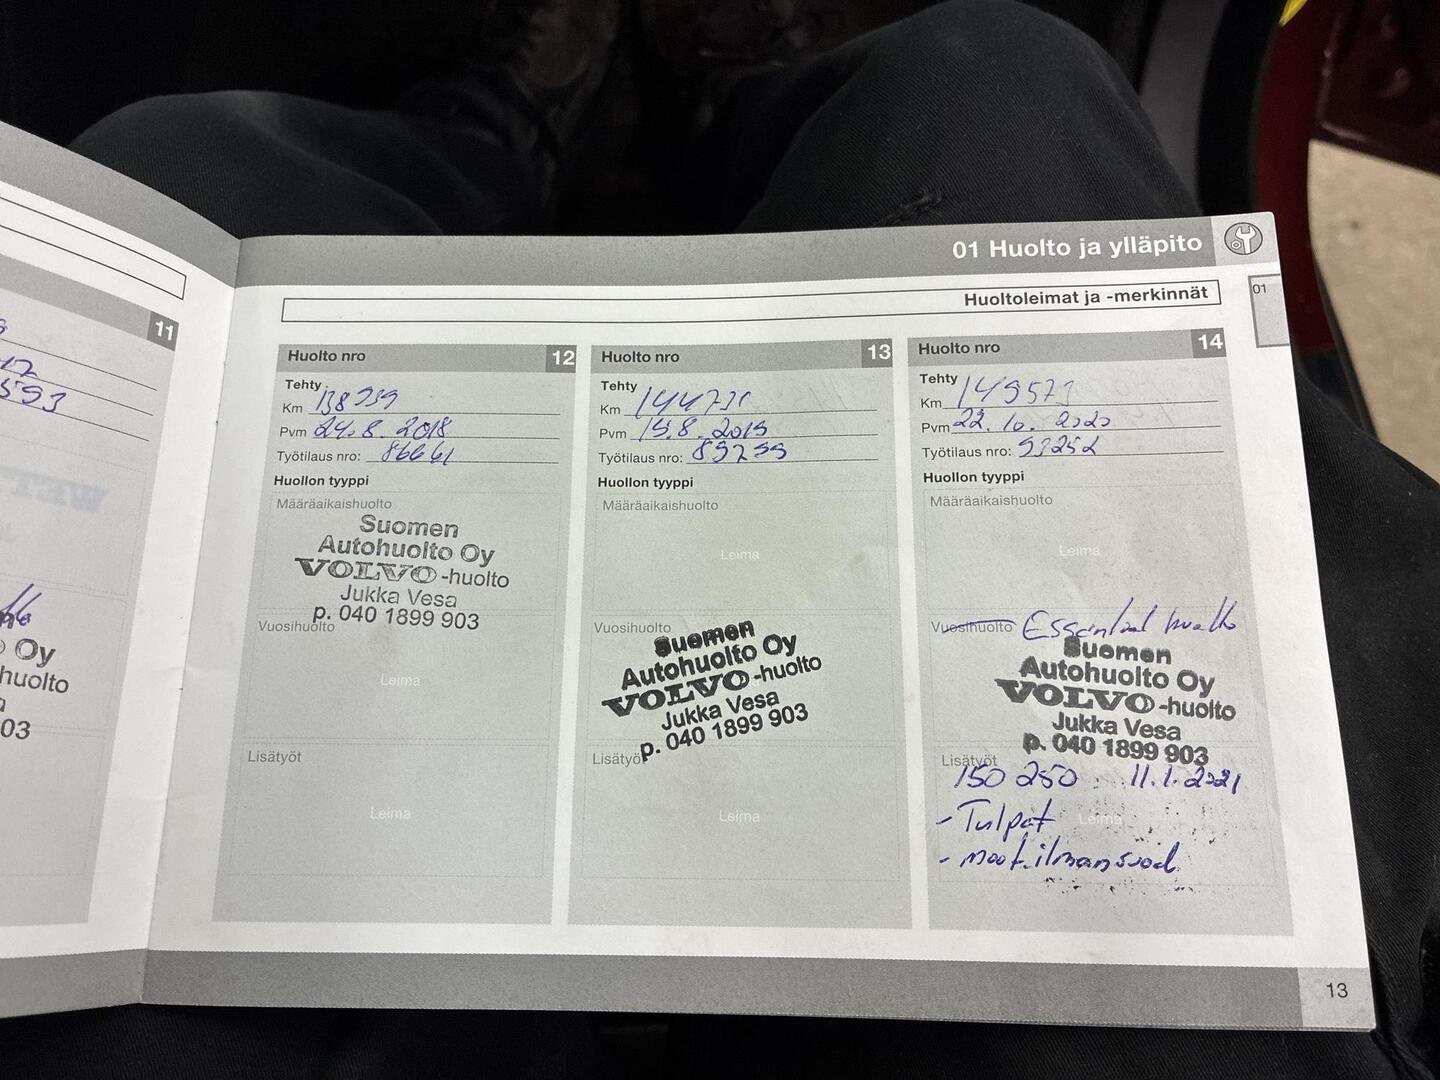 01 Huolto ja ylläpito
Huoltoleimat ja -merkinnät
01
11
Oy
huolto
03
Huolto nro 12
Tehty
Km 138939
Pvm 24.8. 2018
Työtilaus nro: 86661
Huollon tyyppi
Määräaikaishuolto
Suomen
Autohuolto Oy
VOLVO-huolto
Jukka Vesa
p. 040 1899 903
Vuosihuolto
Leima
Lisätyöt
Leima
Huolto nro 13
Tehty
Km 144731
Pvm 15.8. 2019
Työtilaus nro: 89299
Huollon tyyppi
Määräaikaishuolto
Leima
Vuosihuolto
Suomen
Autohuolto Oy
VOLVO-huolto
Jukka Vesa
p. 040 1899 903
Lisätyö
Leima
Huolto nro 14
Tehty
Km 149573
Pvm 22. 10. 2020
Työtilaus nro: 93252
Huollon tyyppi
Määräaikaishuolto
Leima
Vuosihuolto Essential huolto
Suomen
Autohuolto Oy
VOLVO-huolto
Jukka Vesa
p. 040 1899 903
Lisätyöt
150 250 11.1.2021
- Tulpat
Leima
- moot.ilmansuod
13